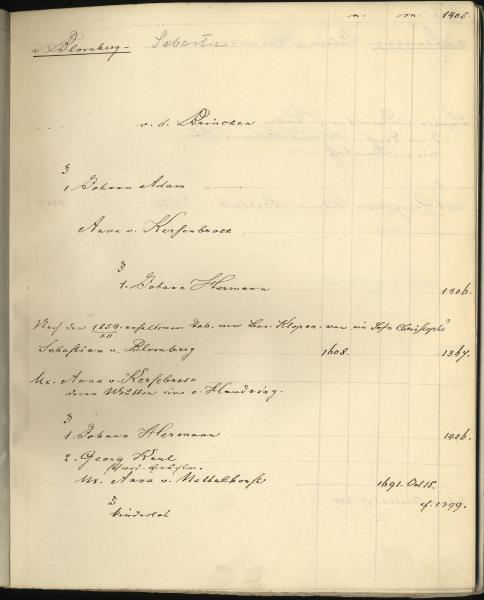 n. m. 1406.
v Blomberg - Sebastian
v. d. Brincken
§
1 Johann Adam
Anna v. Kersenbrock
§
1. Johann Hermann 1406.
Nach der 1854 erhaltenen Tab. von Bar. Klopm. war ein Sohn Christophs
XII
Sebastian v. Blomberg 1608. 1367.
Ux. Anna v. Kersebrock
deren Mutter eine v.
§
1. Johann Hermann 1406.
2. Georg Kerl
Ux. Anna v. Nettelhorst 1691. Oct 15.
§ cf. 1399.
kinderlos